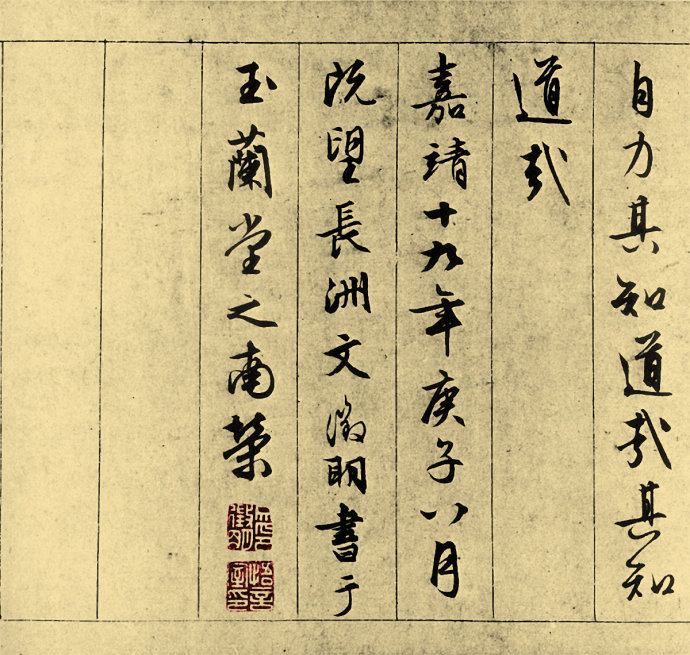 自力其知道哉其知
道哉
嘉靖十九年庚子八月
既望長洲文徵明書于
玉蘭堂之南榮
文徵明印
悟言室印